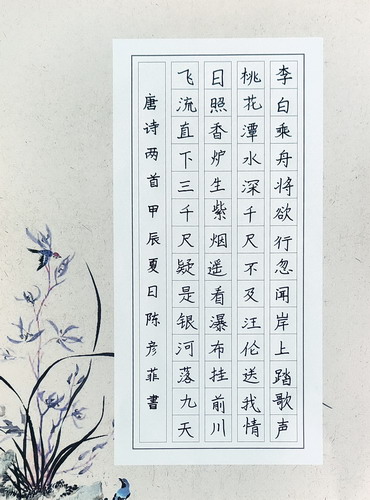 李白乘舟将欲行忽闻岸上踏歌声
桃花潭水深千尺不及汪伦送我情
日照香炉生紫烟遥看瀑布挂前川
飞流直下三千尺疑是银河落九天
唐诗两首甲辰夏日陈彦菲書